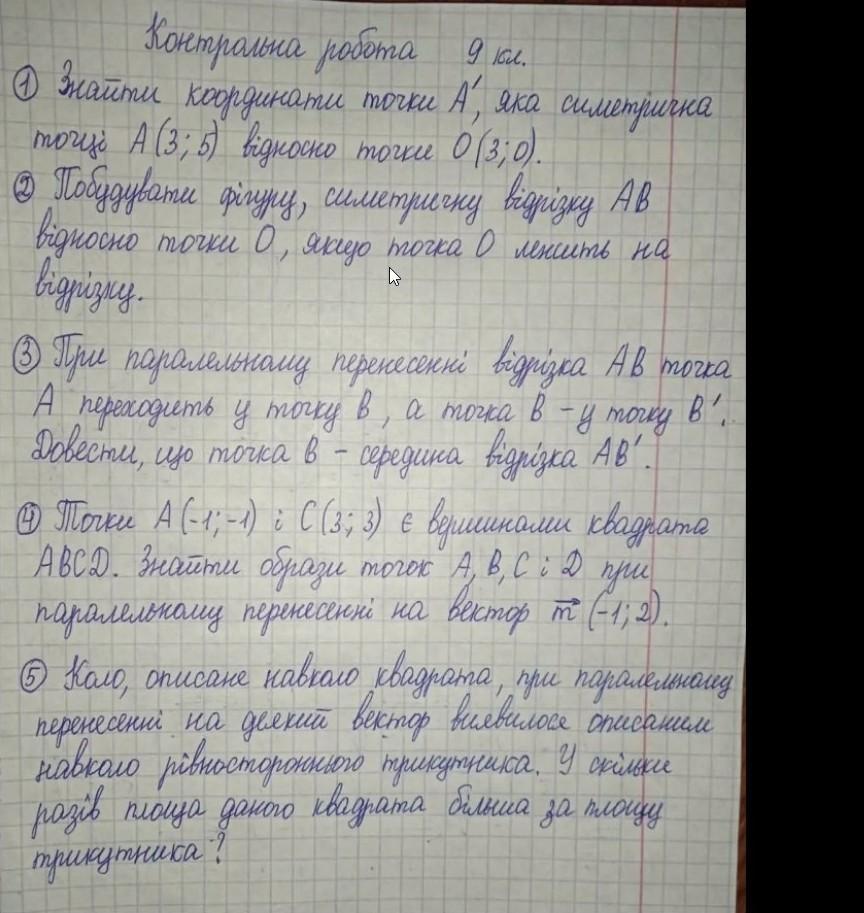 Контрольна робота 9 кл.
① Знайти координати точки A', яка симетрична
точці A(3; 5) відносно точки O(3;0).
② Побудувати фігуру, симетричну відрізку AB
відносно точки O, якщо точка O лежить на
відрізку.
③ При паралельному перенесенні відрізка AB точка
A переходить у точку B, а точка B – у точку B'.
Довести, що точка B – середина відрізка AB'.
④ Точки A(-1;-1) і C(3; 3) є вершинами квадрата
ABCD. Знайти образи точок A, B, C і D при
паралельному перенесенні на вектор m⃗ (-1; 2).
⑤ Коло, описане навколо квадрата, при паралельному
перенесенні на деякий вектор виявилося описаним
навколо рівностороннього трикутника. У скільки
разів площа даного квадрата більша за площу
трикутника?